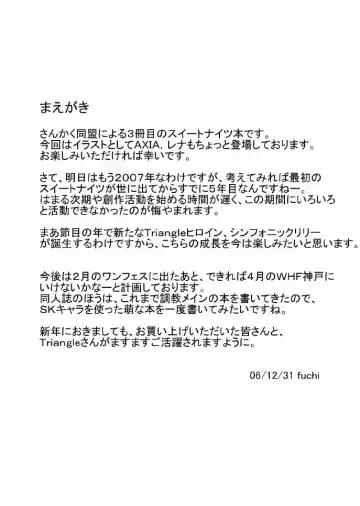 まえがき
さんかく同盟による３冊目のスイートナイツ本です。
今回はイラストとしてＡＸＩＡ，レナもちょっと登場しております。
お楽しみいただければ幸いです。
さて、明日はもう２００７年なわけですが、考えてみれば最初の
スイートナイツが世に出てからすでに５年目なんですねー。
はまる次期や創作活動を始める時間が遅く、この期間にいろいろ
と活動できなかったのが悔やまれます。
まあ節目の年で新たなＴｒｉａｎｇｌｅヒロイン、シンフォニックリリー
が誕生するわけですから、こちらの成長を今は楽しみたいと思います。
今後は２月のワンフェスに出たあと、できれば４月のＷＨＦ神戸に
いけないかなーと計画しております。
同人誌のほうは、これまで調教メインの本を書いてきたので、
ＳＫキャラを使った萌な本を一度書いてみたいですね。
新年におきましても、お買い上げいただいた皆さんと、
Ｔｒｉａｎｇｌｅさんがますますご活躍されますように。
06/12/31 fuchi